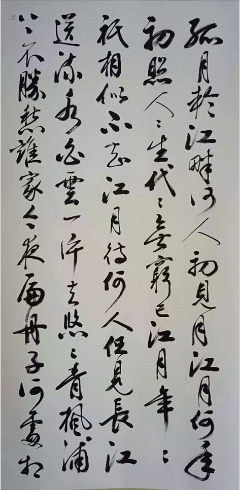 孤月輪江畔何人初見月江月何年
初照人〻生代〻無窮已江月年〻
祇相似不知江月待何人但見長江
送流水白雲一片去悠〻青楓浦
上不勝愁誰家今夜扁舟子何處相